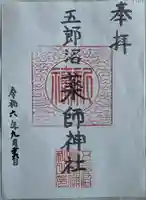 奉拝
五郎沼
薬師神社
令和六年九月